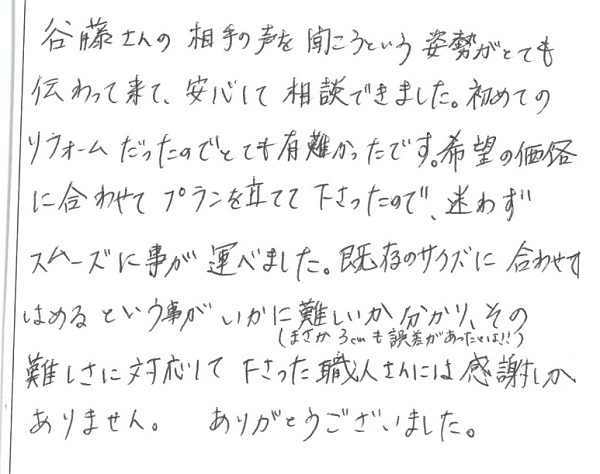 谷藤さんの 相手の声を 聞こうという 姿勢がとても
伝わって来て、安心して 相談できました。初めての
リフォームだったのでとても有難かったです。希望の価格
に合わせて プランを立てて 下さったので、迷わず
スムーズに事が 運べました。既存のサイズに 合わせて
はめるという事が いかに難しいか分かり、その
(まさか 3cmも誤差があったとは!!)
難しさに対応して 下さった職人さんには感謝しか
ありません。 ありがとうございました。